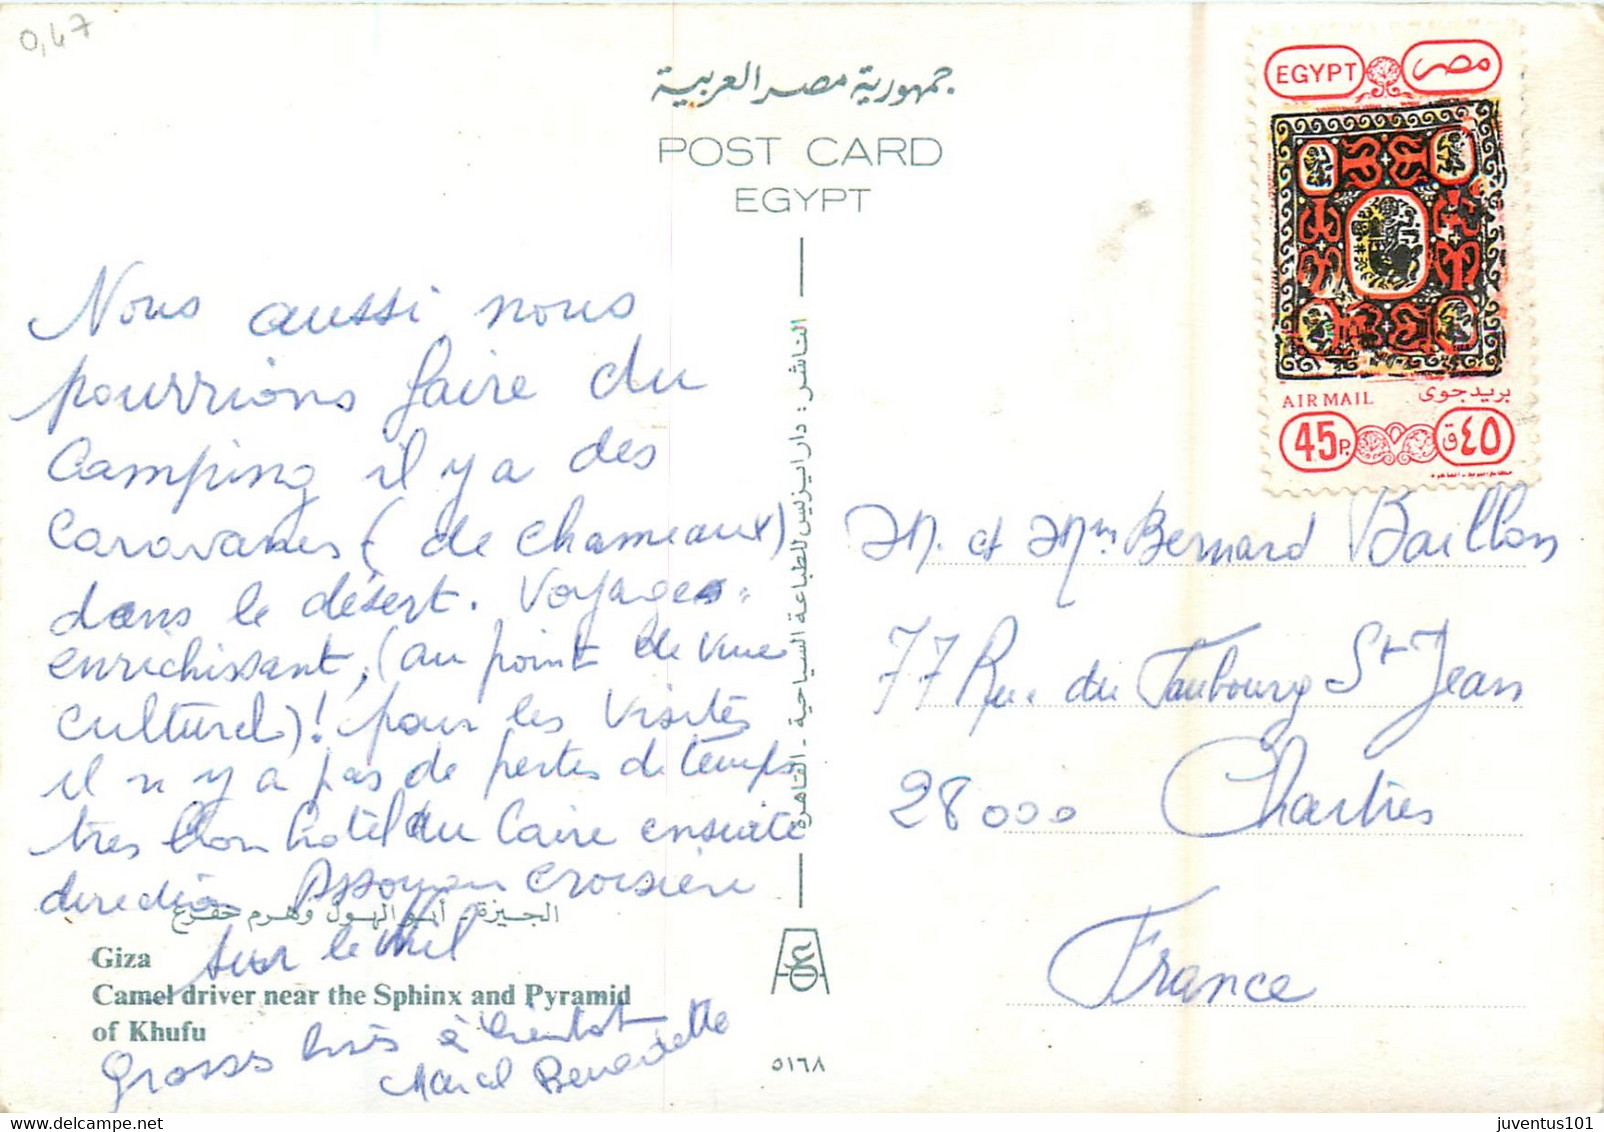 0,47
جمهورية مصر العربية
POST CARD
EGYPT
EGYPT مصر
AIR MAIL بريد جوى
45 P. ٤٥ ق
Nous aussi nous
pourrions faire du
Camping il y a des
Caravanes (de chameaux)
dans le désert. Voyages
enrichissant, (au point de vue
Culturel)! pour les visites
il n y a pas de pertes de temps
tres bon hotel du Caire ensuite
direction Assouan croisière
sur le Nil
Grosses bises à bientot
Marcel Bernadette
الناشر : دار ايزيس للطباعة السياحية - القاهرة
M. et Mm Bernard Baillon
77 Rue du Faubourg St Jean
28000 Chartres
France
الجيزة - أبو الهول وهرم خفرع
Giza
Camel driver near the Sphinx and Pyramid
of Khufu
٥١٦٨
juventus101